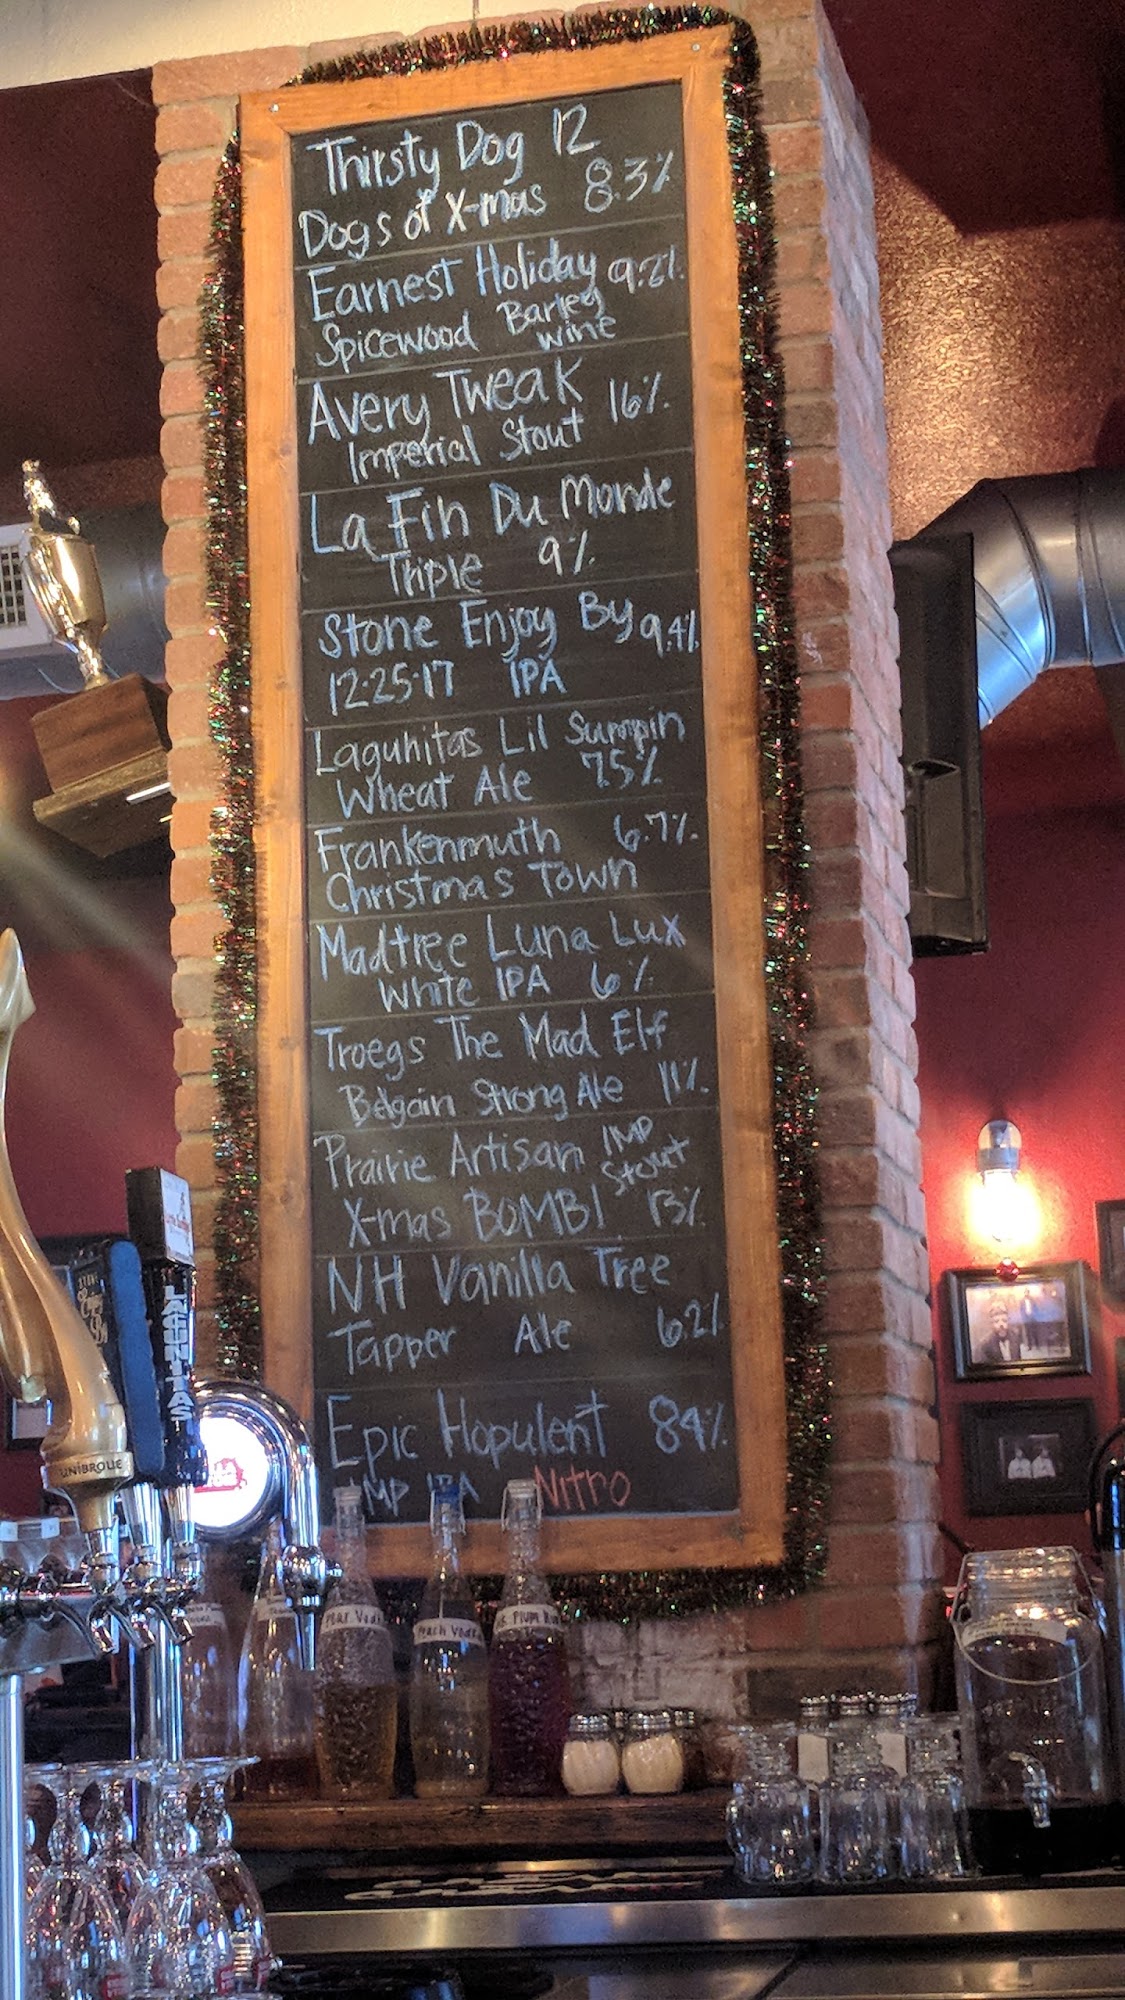 Thirsty Dog 12
Dogs of X-mas 8.3%
Earnest Holiday 9.2%
Spicewood Barley
wine
Avery Tweak
Imperial Stout 16%
La Fin Du Monde
Triple 9%
Stone Enjoy By 9.4%
12.25.17 IPA
Lagunitas Lil Sumpin
Wheat Ale 7.5%
Frankenmuth 6.7%
Christmas Town
Madtree Luna Lux
White IPA 6%
Troegs The Mad Elf
Belgain Strong Ale 11%
Prairie Artisan IMP
Stout
X-mas BOMB! 13%
NH Vanilla Tree
Tapper Ale 6.2%
Epic Hopulent 8.4%
IMP IPA Nitro
LAGUNITAS
UNIBROUE
Pear Vodka
Peach Vodka
Plum